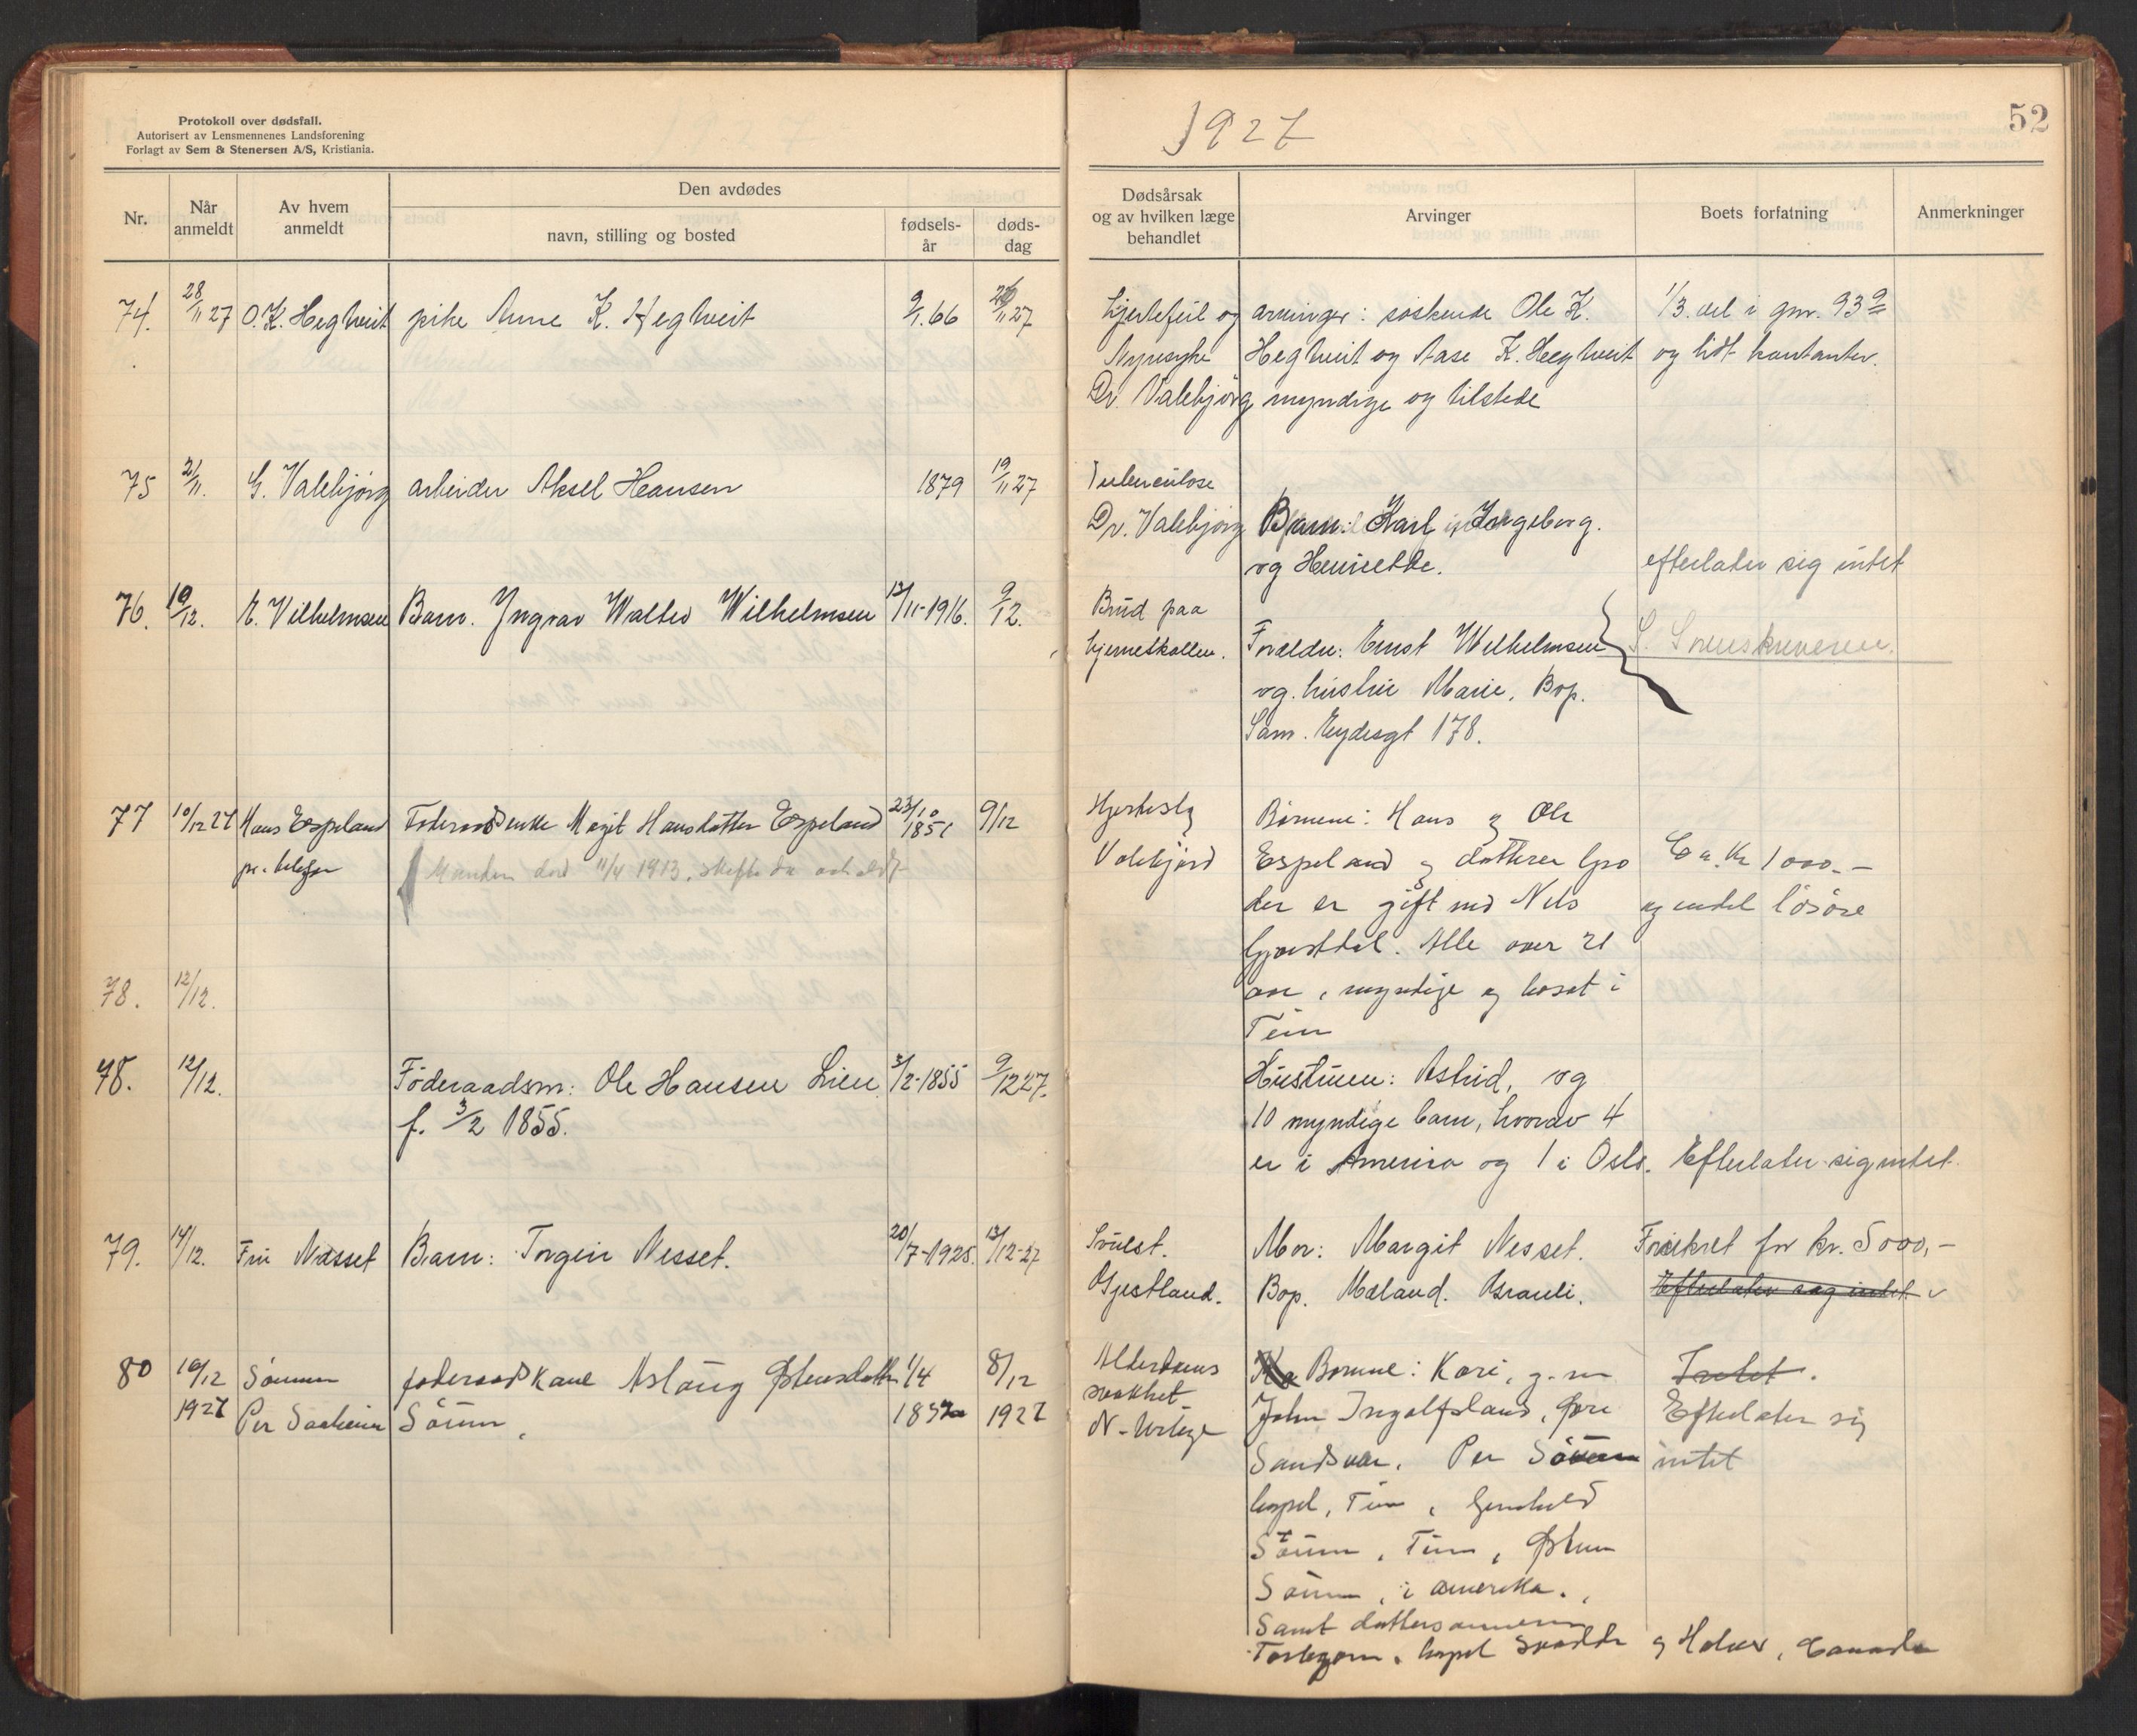 Protokoll over dødsfall.
Autorisert av Lensmennenes Landsforening
Forlagt av Sem & Stenersen A/S, Kristiania.
Nr.
Når anmeldt
Av hvem anmeldt
Den avdødes
navn, stilling og bosted
fødsels-år
døds-dag
74. 28/11 27 O.K. Hegtveit pike Anne K. Hegtveit 9/1.66 /11 27
75 21/11. G. Valebjörg arbeider Aksel Hansen 1879 19/11 27
76. 10/12. E. Vilhelmsen Barn. Yngvar Walter Wilhelmsen 13/11-1916. 9/12.
77 10/12 27 Hans Espeland Föderaadsenke Margit Hansdatter Espeland 23/10 1851 9/12
pr. telefon Manden död 11/4 1913, skifte da avholdt
78. 12/12.
78. 12/12. Föderaadsm: Ole Hansen Lien 3/2-1855 9/12 27.
f. 3/2 1855.
79. 14/12. Fru Nesset Barn: Torgeir Nesset. 20/7-1925. 13/12-27
80 16/12 Sönnen föderaadskane Aslaug Østensdatter 1/4 8/12
1927 Per Sörum 1927
52
1927
Dødsårsak
og av hvilken læge
behandlet
Arvinger
Boets forfatning
Anmerkninger
hjertefeil og arvinger: söskende Ole K. 1/3. del i gnr. 93
Nyresyke Hegtveit og Aase K. Hegtveit og lidt kontanter.
Dr. Valebjörg myndige og tilstede
Tuberculose
Dr. Valebjörg Barn: Karl, Ingeborg.
og Henriette. efterlater sig intet
Brud paa
hjerneskallen. Foreldre: Ernst Wilhelmsen S. Sorenskriveren.
og hustru Marie, Bop.
Sam. Eydesgt 178.
Hjerteslag Börnene: Hans og Ole
Valebjörg Espeland og datteren Gro Ca. kr 1000.-
der er gift med Nils og endel lösöre
Gjøsdal. Alle over 21
aar, myndige og bosat i
Tinn
Hustruen: Astrid, og
10 myndige barn, hvorav 4
er i Amerika og 1 i Oslo. Efterlater sig intet.
Svulst. Mor: Margit Nesset. Forsikret for kr. 5000,-
Gjestland. Bop. Mæland. Efterlater sig intet
Alderdoms Börnene: Kari, g. m. Intet.
svakhet John Ingolfsland, Efterlater sig
Sandsvær. Per intet
bopel, Tinn, Gunhild
Sörum, Tinn, Østen
i Amerika.
Samt dattersönnerne
bopel og Halvor, Canada